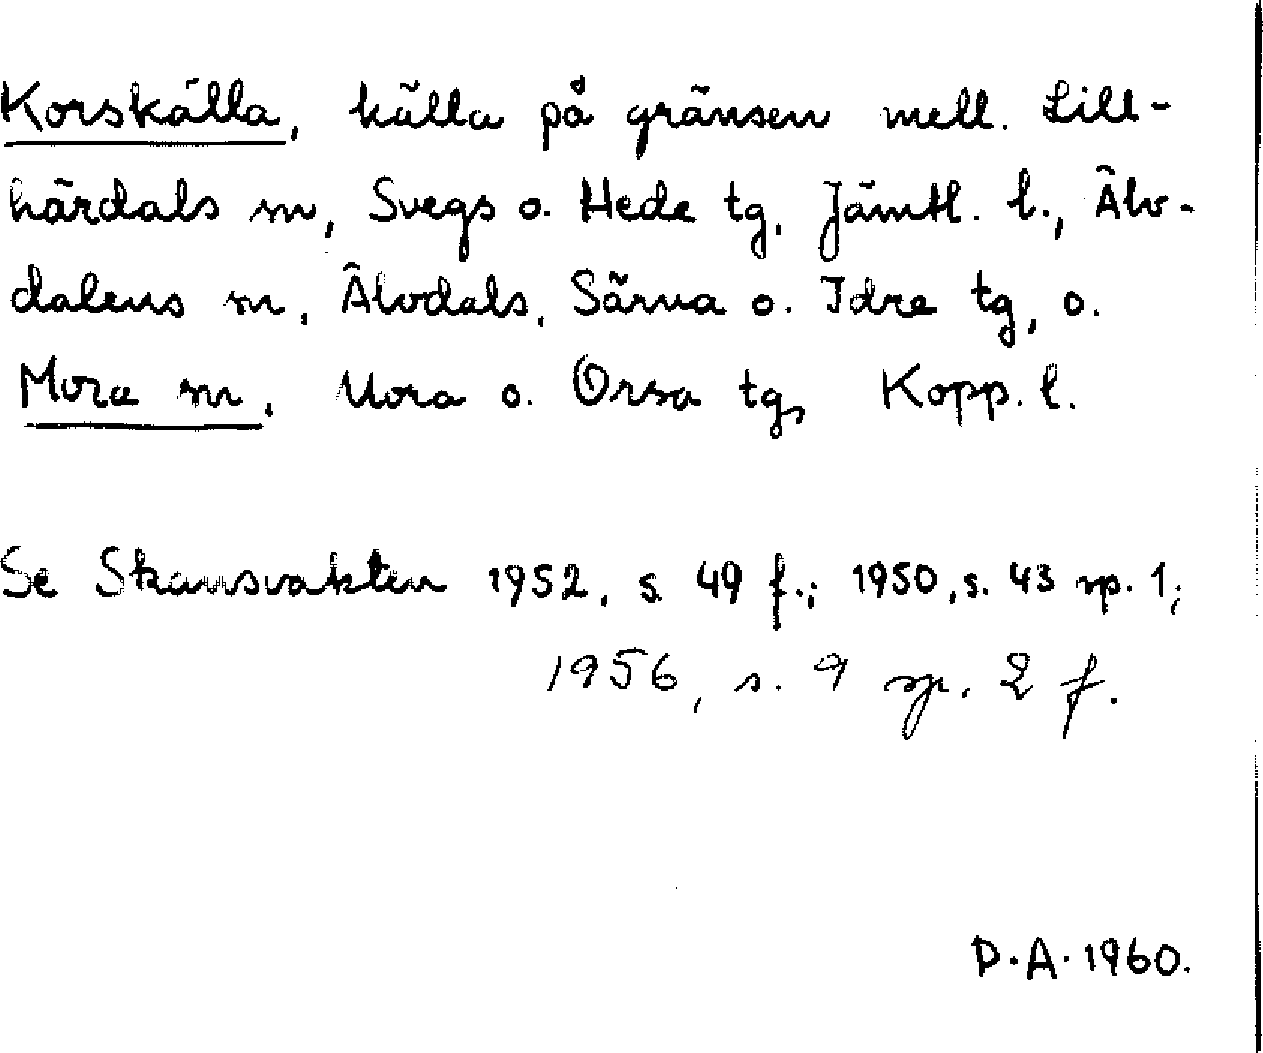 Korskälla, källa på gränsen mell. Lill-
härdals sn, Svegs o. Hede tg, Jämtl. l., Älv-
dalens sn, Älvdals, Särna o. Idre tg, o.
Mora sn, Mora o. Orsa tg, Kopp. l.
Se Skansvakten 1952, s. 49 f.; 1950, s. 43 sp. 1;
1956, s. 9 sp. 2 f.
D.A. 1960.